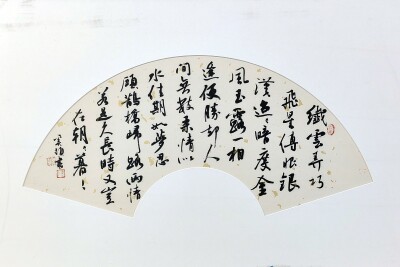 纖雲弄巧
飛星傳恨銀
漢迢々暗度金
風玉露一相
逢便勝卻人
間無數柔情似
水佳期如夢忍
顧鵲橋歸路兩情
若是久長時又豈
在朝々暮々